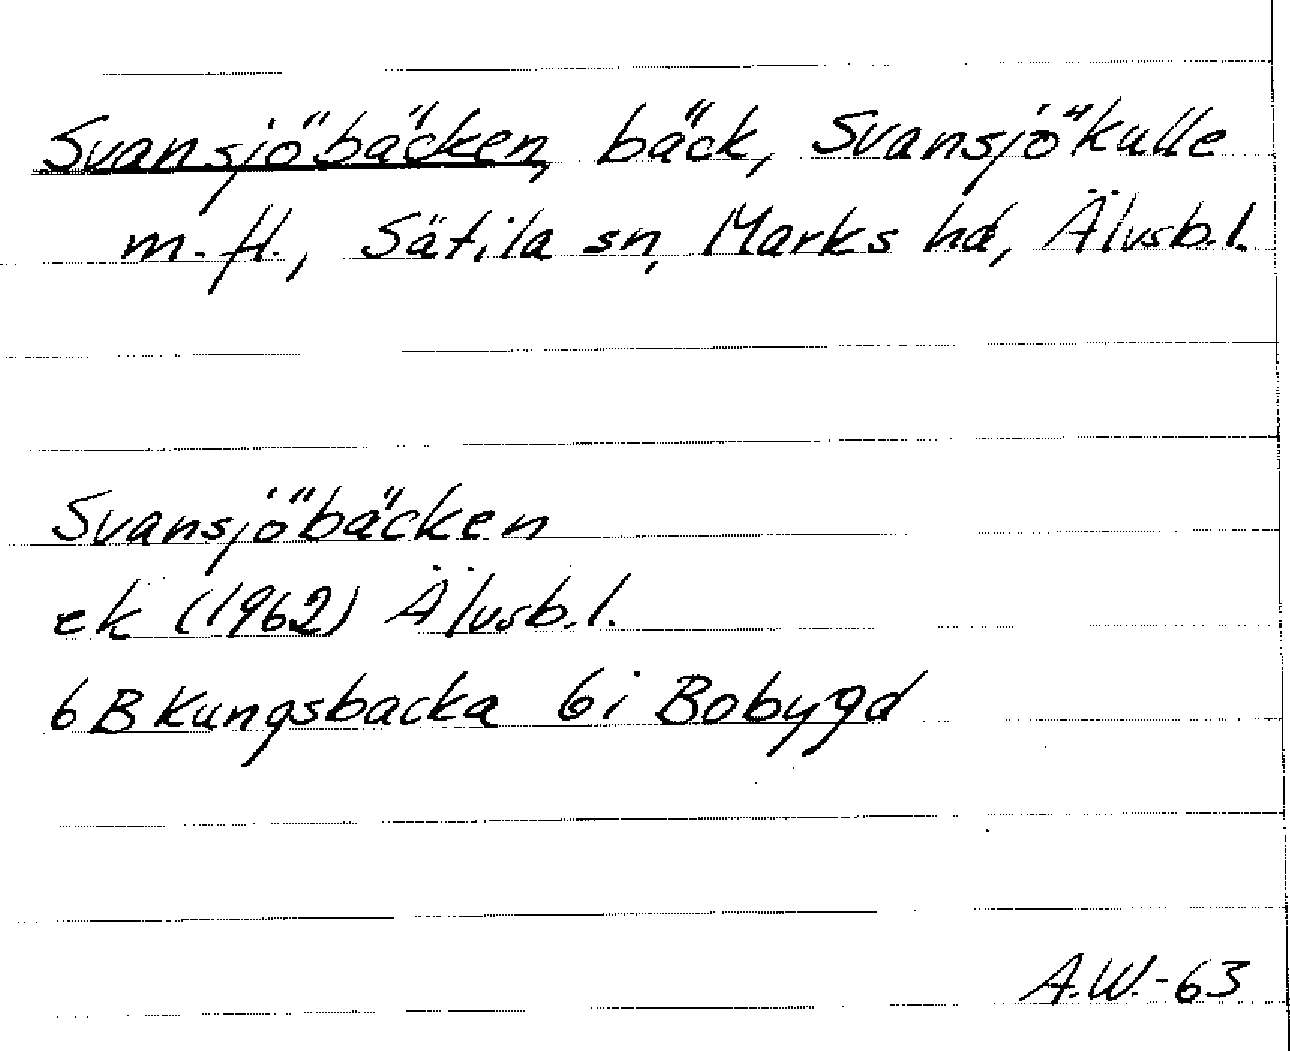 Svansjöbäcken, bäck, Svansjökulle
m.fl., Sätila sn, Marks hd, Älvsb.l.
Svansjöbäcken
ek (1962) Älvsb.l.
6B Kungsbacka 6i Bobygd
A.W.-63